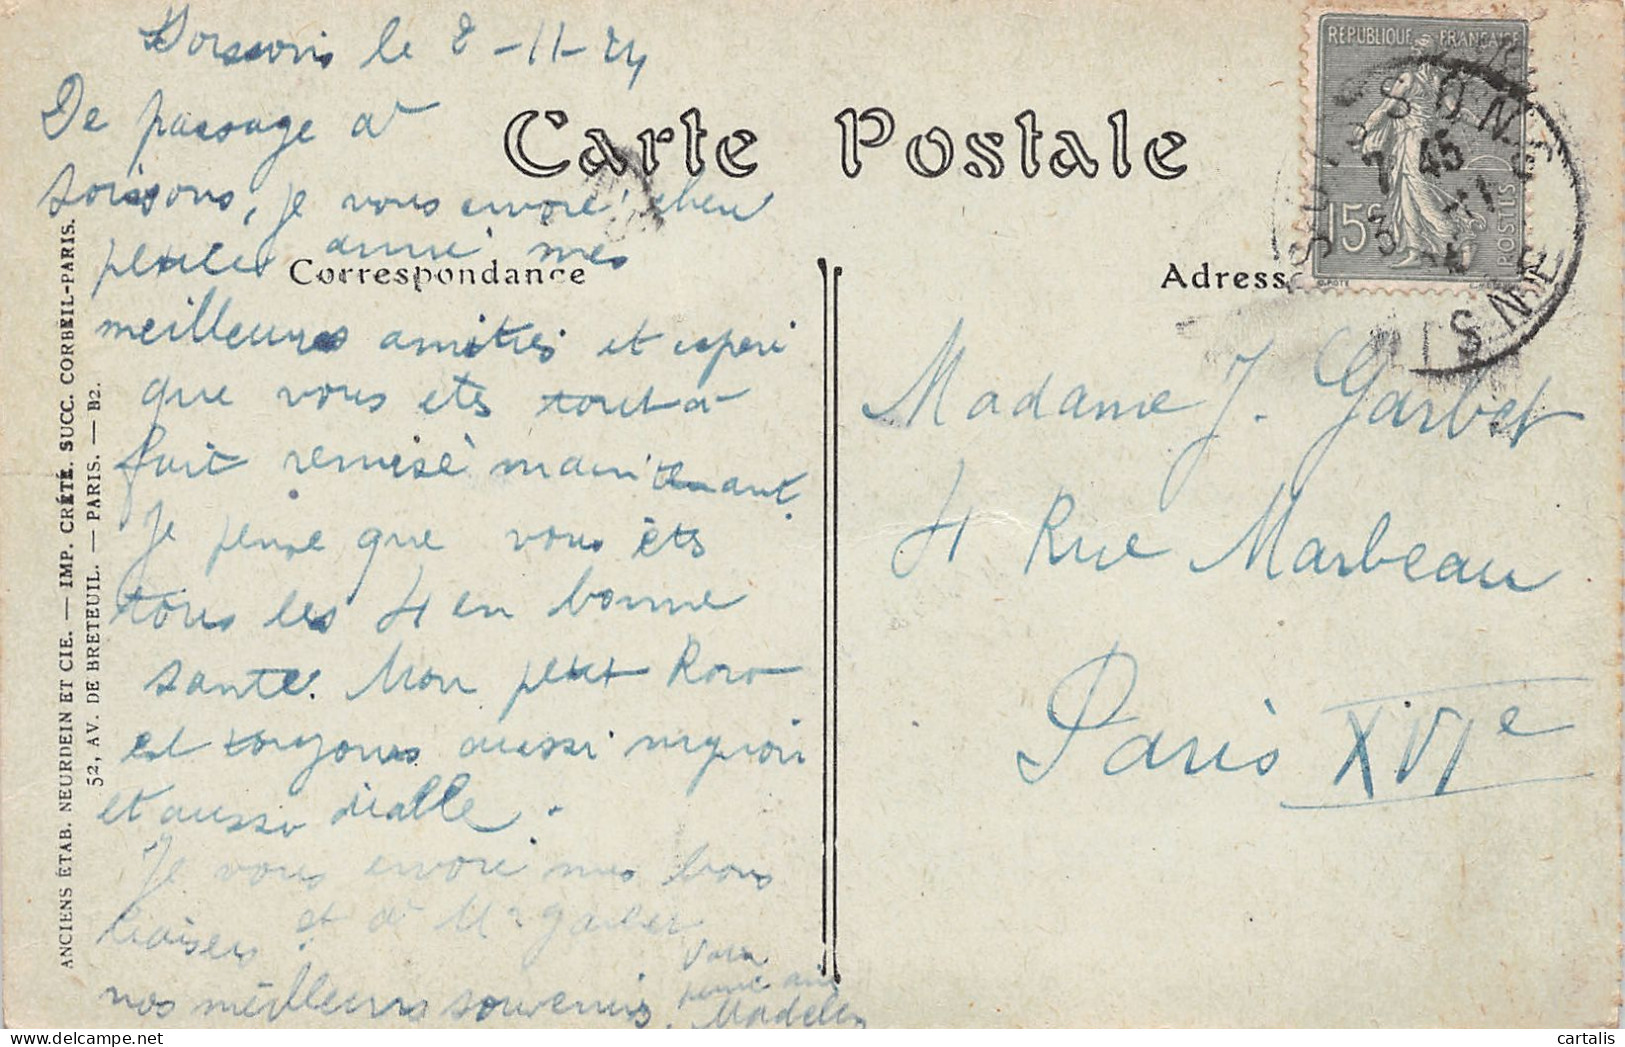 Soissons le 2-11-24
De passage a
soissons, je vous envoie chere
petite amie mes
meilleures amities et esperè
que vous etes tout a
fait remise maintenant.
Je pense que vous êtes
tous les 4 en bonne
sante. Mon petit Roro
est toujours aussi mignon
et aussi diable.
Je vous envoie mes bons
baisers et a Mr Garbet
nos meilleurs souvenirs.
Votre
petite amie
Madelen
Carte Postale
Correspondance
Adresse
ANCIENS ÉTAB. NEURDEIN ET CIE. — IMP. CRÉTÉ. SUCC. CORBEIL-PARIS.
52, AV. DE BRETEUIL. — PARIS. — B2.
RÉPUBLIQUE FRANÇAISE
15c
POSTES
SOISSONS
7 45
3 - 11
AISNE
Madame J. Garbet
4 Rue Marbeau
Paris XVIe
cartalis